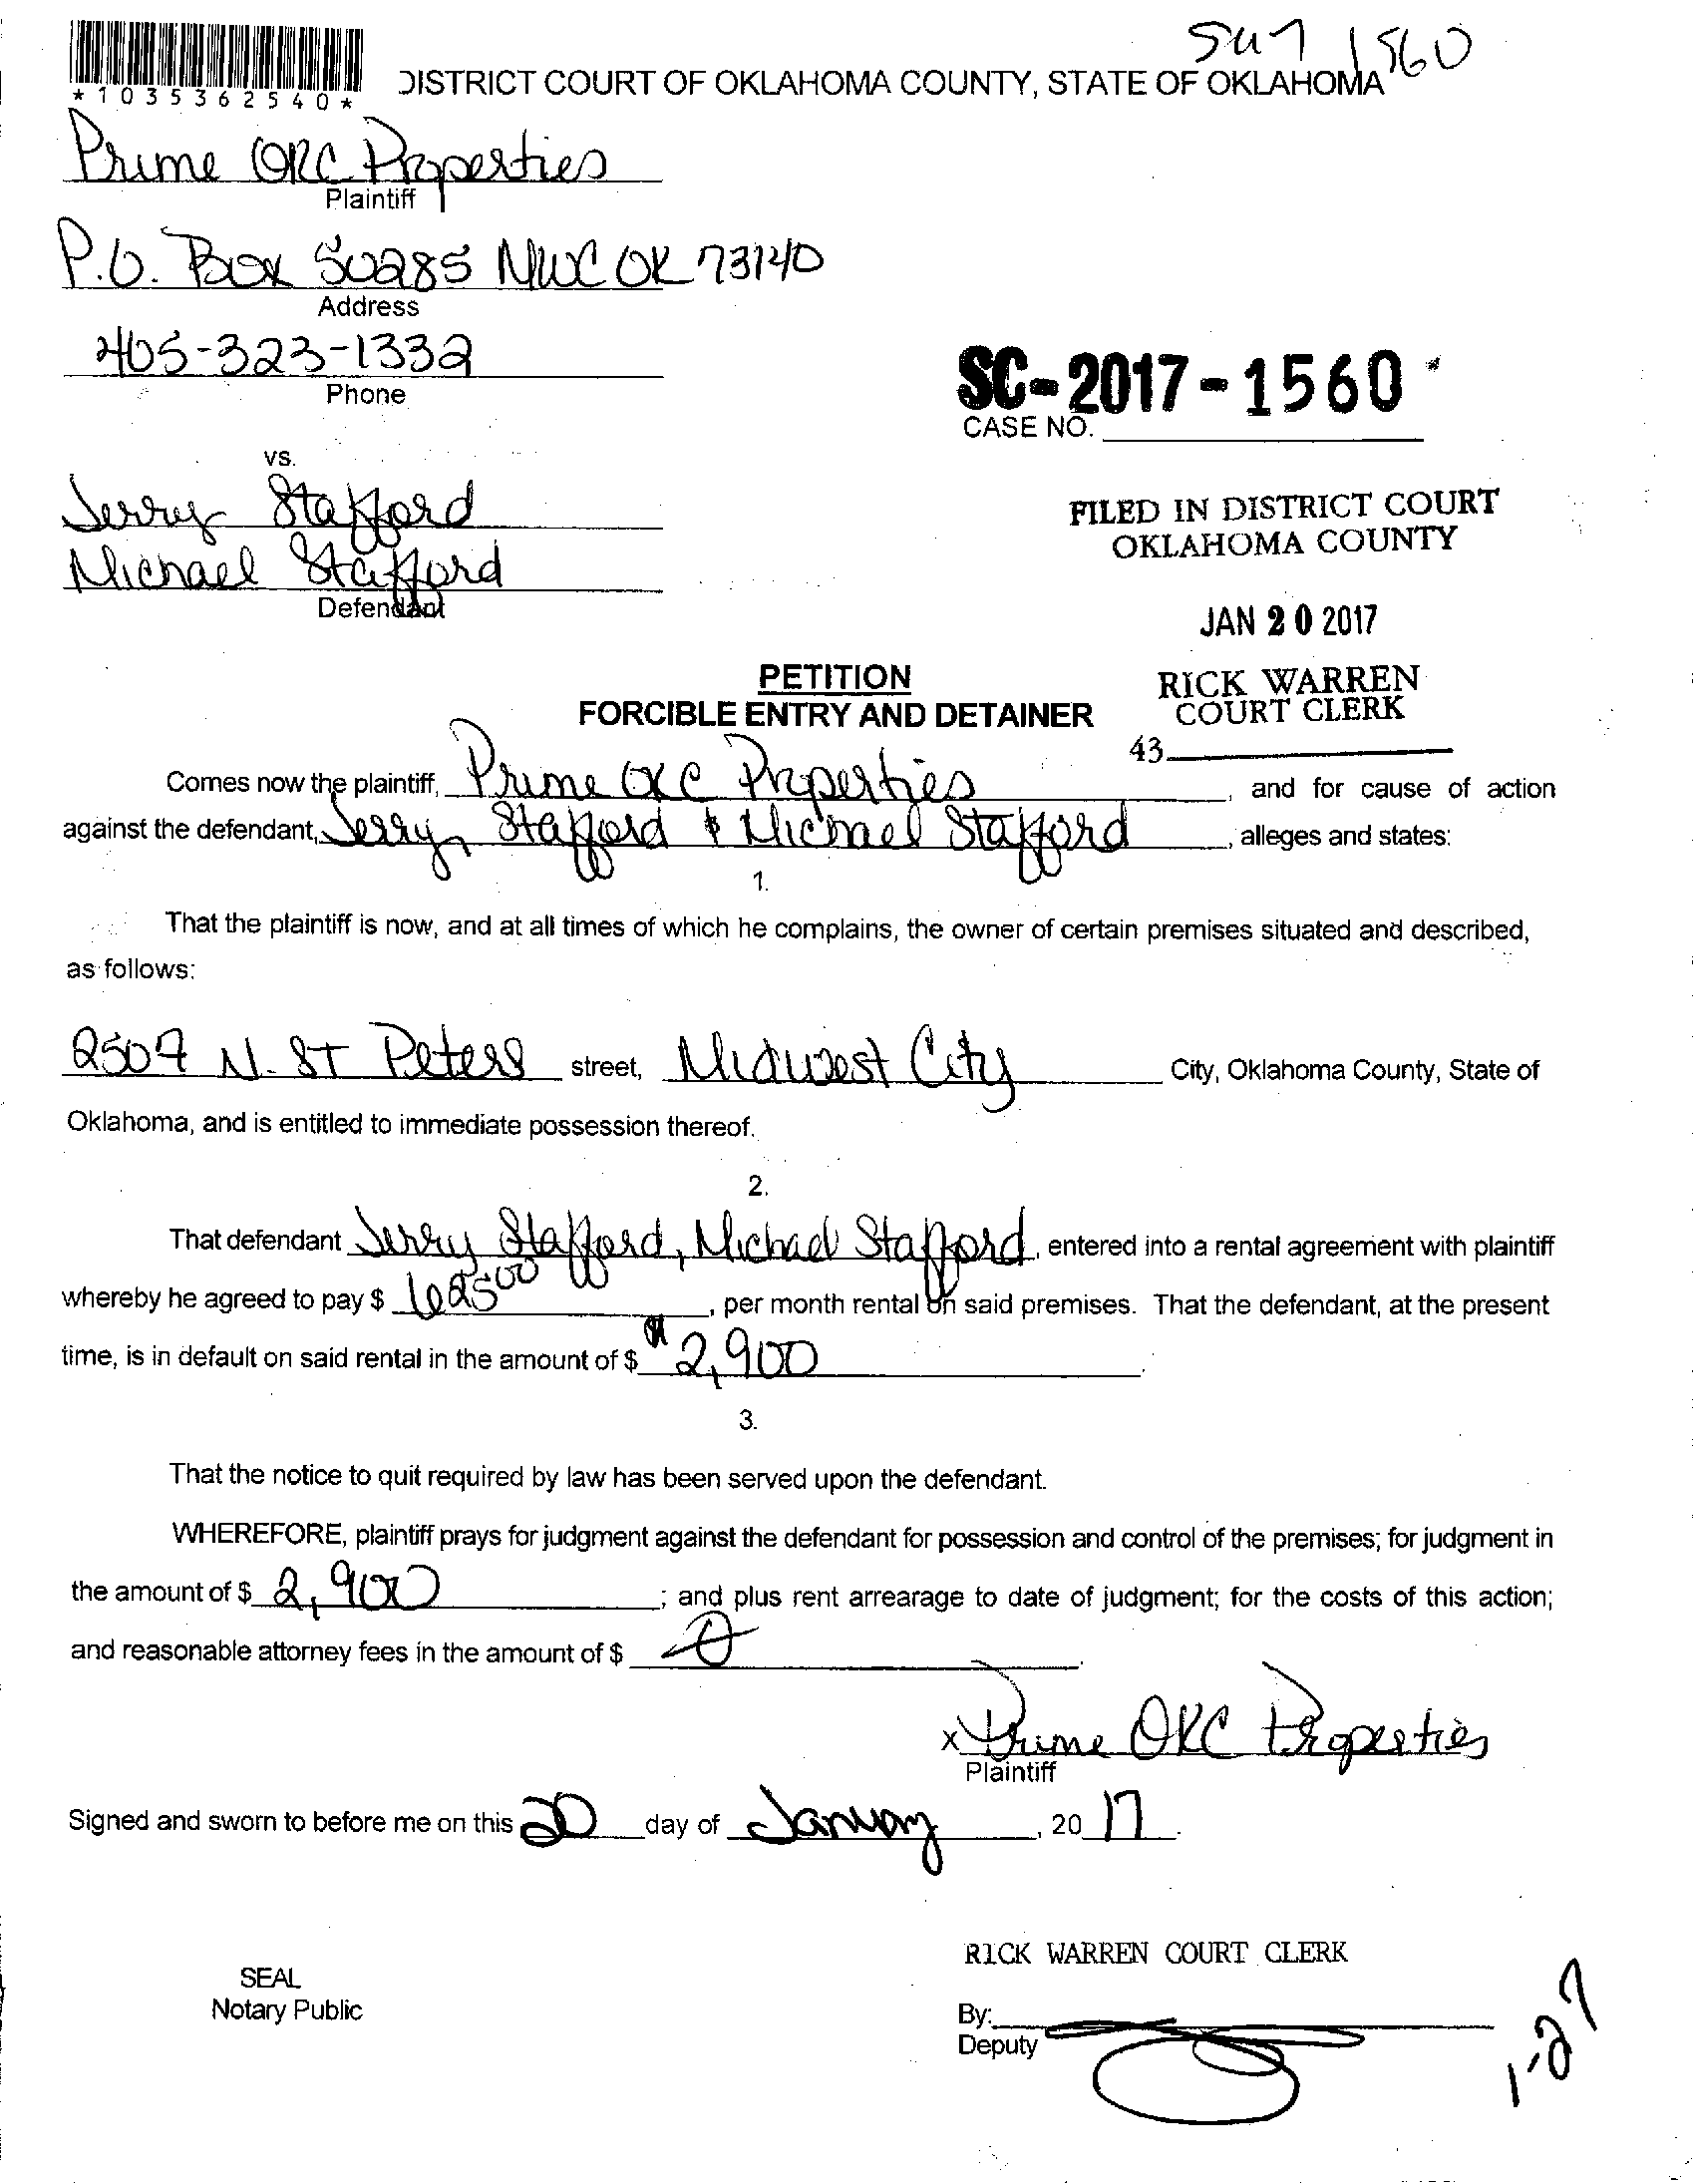 *1035362540*
1560
DISTRICT COURT OF OKLAHOMA COUNTY, STATE OF OKLAHOMA
Prime OKC Properties
Plaintiff
P.O. Box 50285 MWC OK 73140
Address
405-323-1332
Phone
SC-2017-1560
CASE NO.
vs.
Jerry Stafford
Michael Stafford
Defendant
FILED IN DISTRICT COURT
OKLAHOMA COUNTY
JAN 20 2017
RICK WARREN
COURT CLERK
43
PETITION
FORCIBLE ENTRY AND DETAINER
Comes now the plaintiff, Prime OKC Properties, and for cause of action
against the defendant, Jerry Stafford & Michael Stafford, alleges and states:
1.
That the plaintiff is now, and at all times of which he complains, the owner of certain premises situated and described,
as follows:
2507 N. ST Peters street, Midwest City City, Oklahoma County, State of
Oklahoma, and is entitled to immediate possession thereof.
2.
That defendant Jerry Stafford, Michael Stafford, entered into a rental agreement with plaintiff
whereby he agreed to pay $ 62500, per month rental on said premises. That the defendant, at the present
time, is in default on said rental in the amount of $ 2,900.
3.
That the notice to quit required by law has been served upon the defendant.
WHEREFORE, plaintiff prays for judgment against the defendant for possession and control of the premises; for judgment in
the amount of $ 2,900; and plus rent arrearage to date of judgment; for the costs of this action;
and reasonable attorney fees in the amount of $ 0.
x Prime OKC Properties
Plaintiff
Signed and sworn to before me on this 20 day of January, 2017.
RICK WARREN COURT CLERK
SEAL
Notary Public
By:
Deputy
1-27